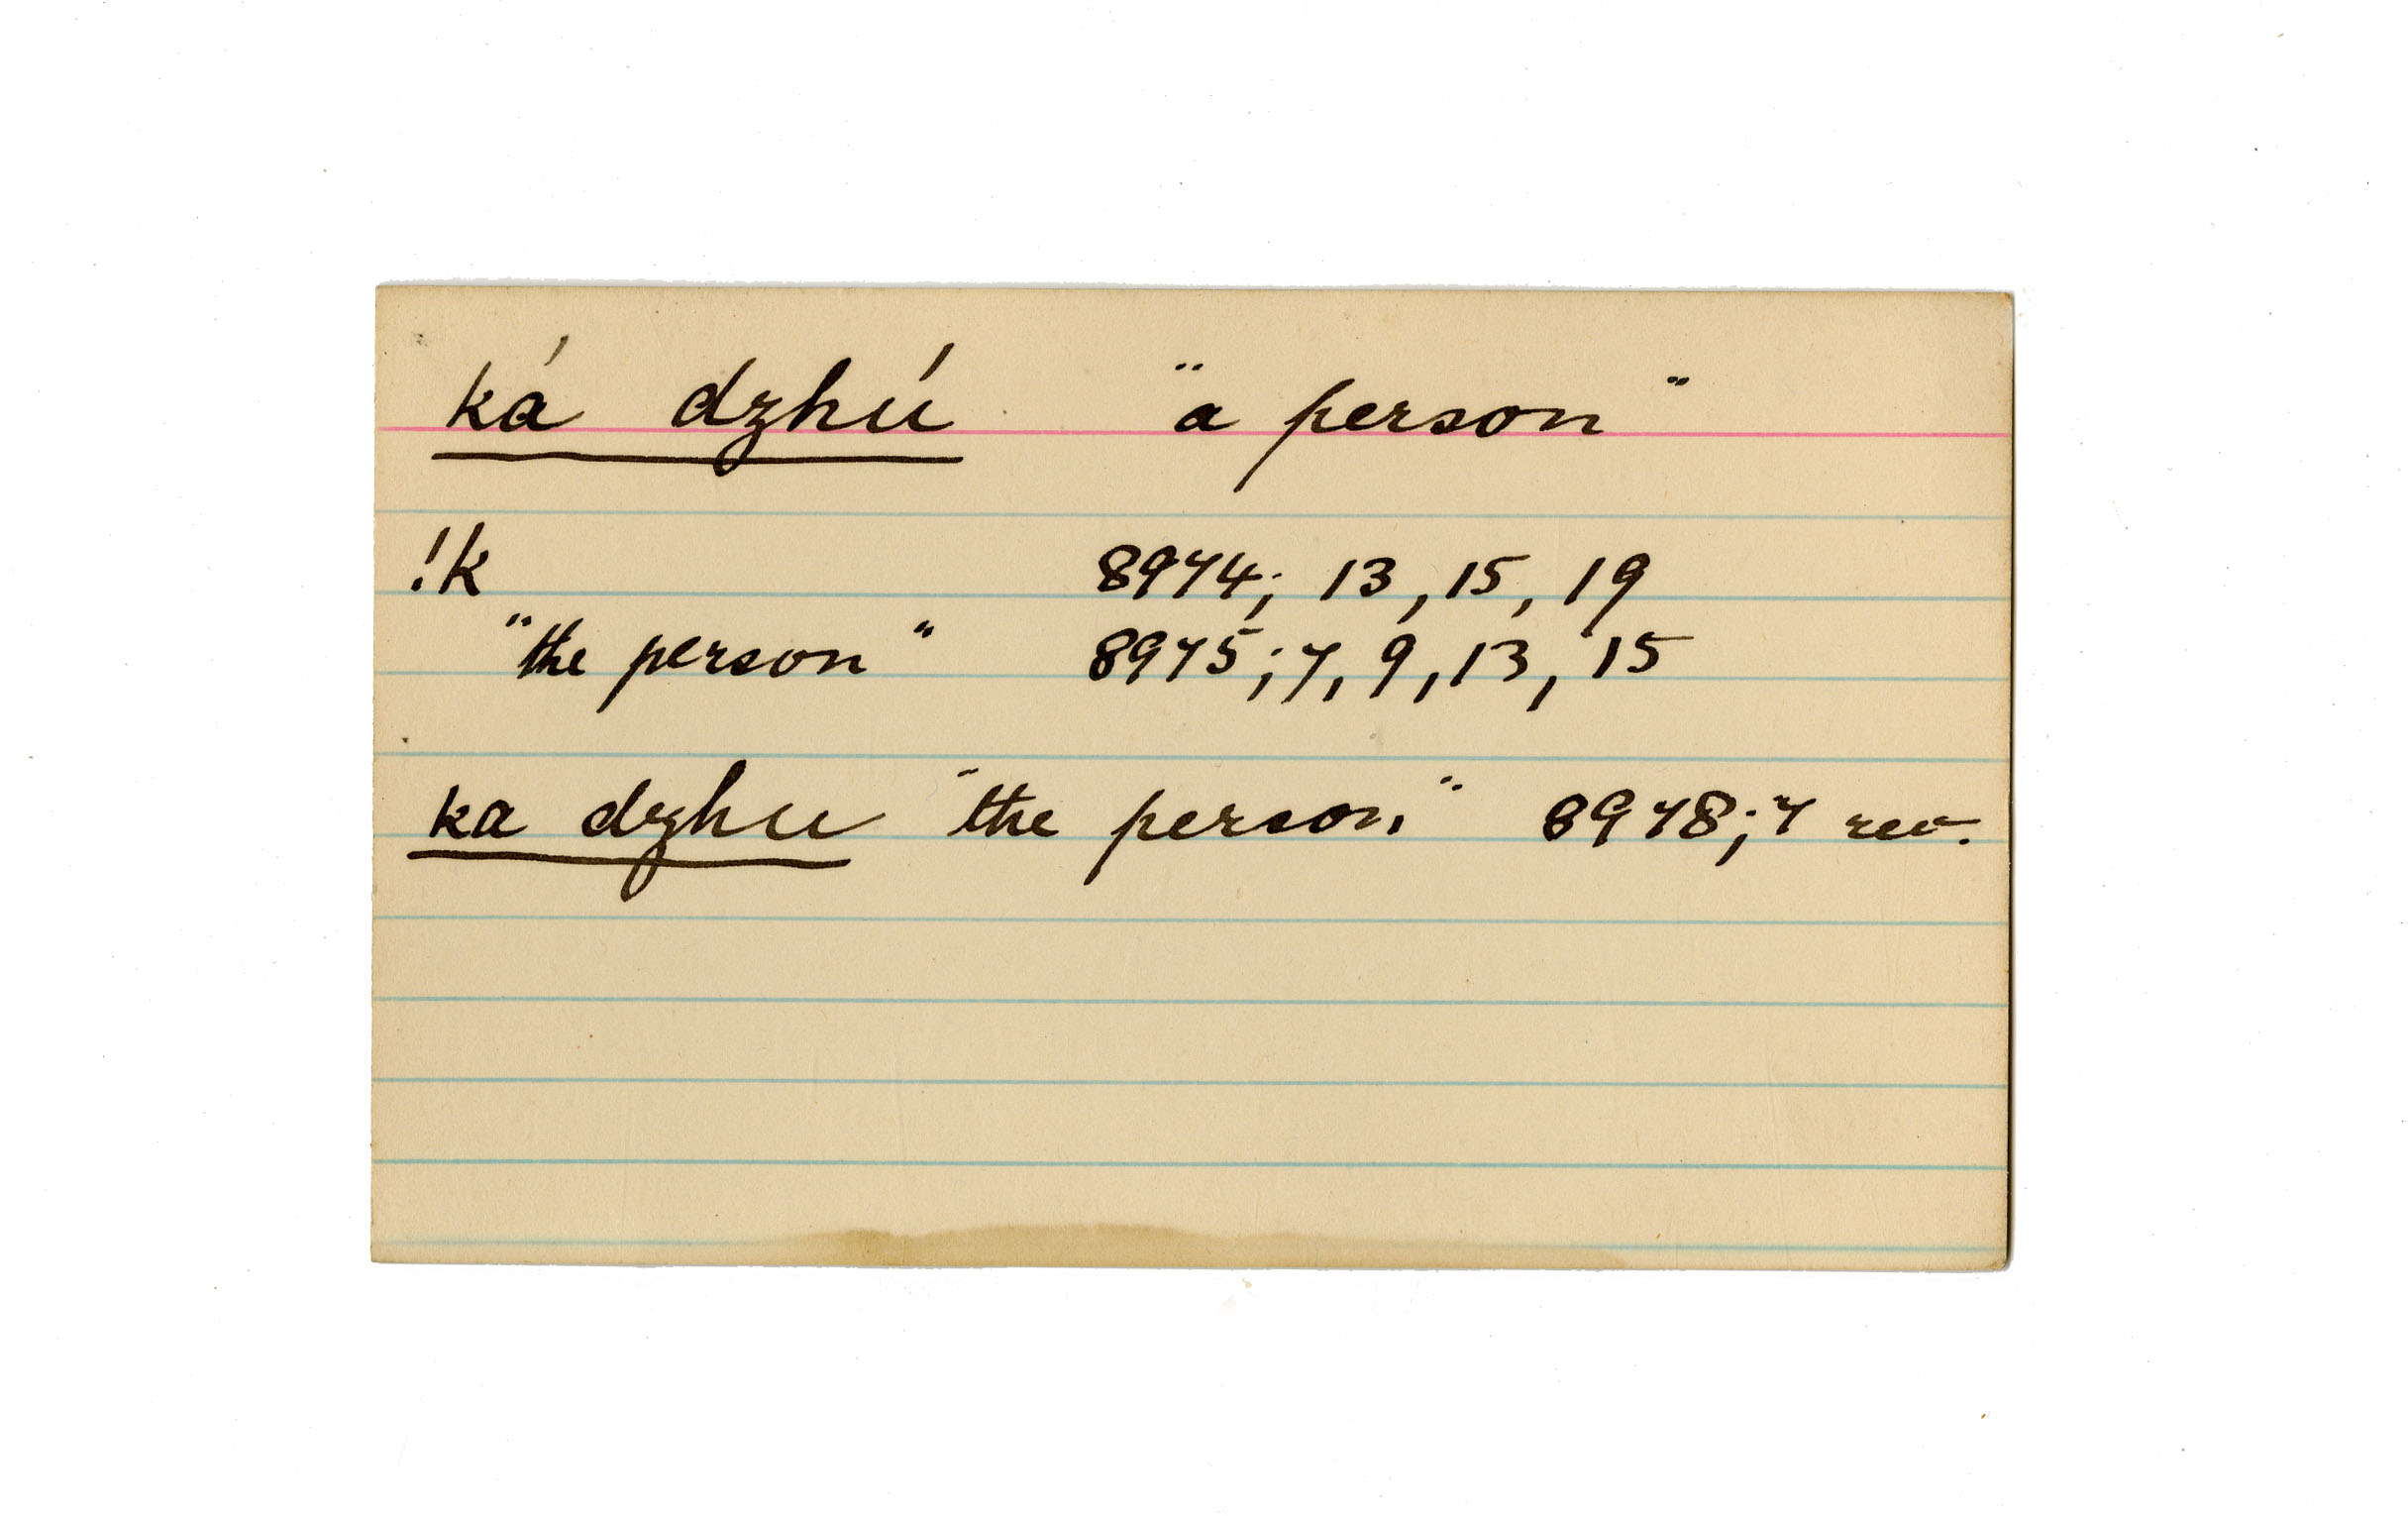 ká dzhú "a person"
!k 8974; 13, 15, 19
"the person" 8975; 7, 9, 13, 15
ka dzhu "the person" 8978; 7 rev.